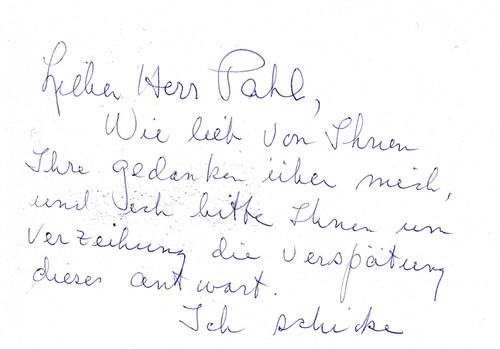 Lieber Herr Pahl,
Wie lieb von Ihnen
Ihre gedanken über mich,
und ich bitte Ihnen um
Verzeihung die Verspätung
dieses antwort.
Ich schicke